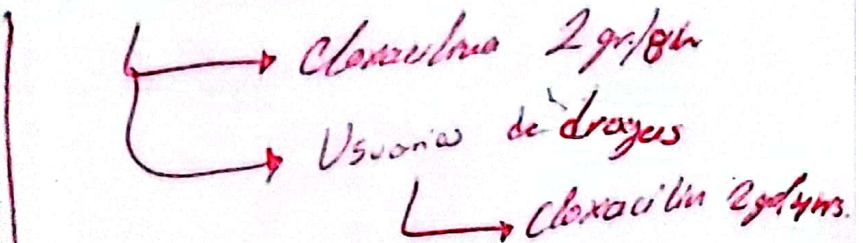 Cloxacilina 2 gr/8h
Usuarios de drogas
Cloxacilin 2gr/4hrs.